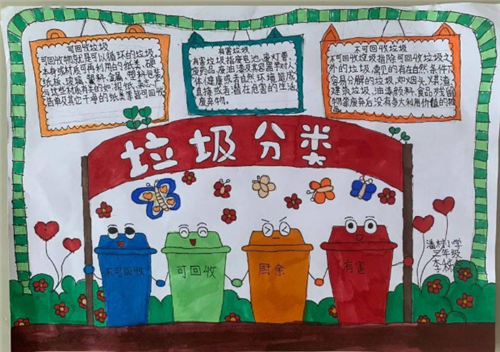 可回收垃圾
可回收物就是可以循环的垃圾
本身或材质可再利用的纸类、硬
纸板、玻璃、塑料、金属、塑料包装
与这些材质有关的如:报纸、杂志、
告单及其它干净的纸类等可回收
有害垃圾
有害垃圾指废电池、废灯管、
废药品、废油漆及其容器等对人
体健康或者自然环境造成
直接或者潜在危害的生活
废弃物。
不可回收垃圾
不可回收垃圾指除可回收垃圾之
外的垃圾,常见的有在自然条件下
易分解的垃圾,如烟头,煤渣
建筑垃圾,油漆颜料,食品残留
物等废弃后没有多大利用价值的物
垃圾分类
不可回收
可回收
厨余
有害
小学
三年级